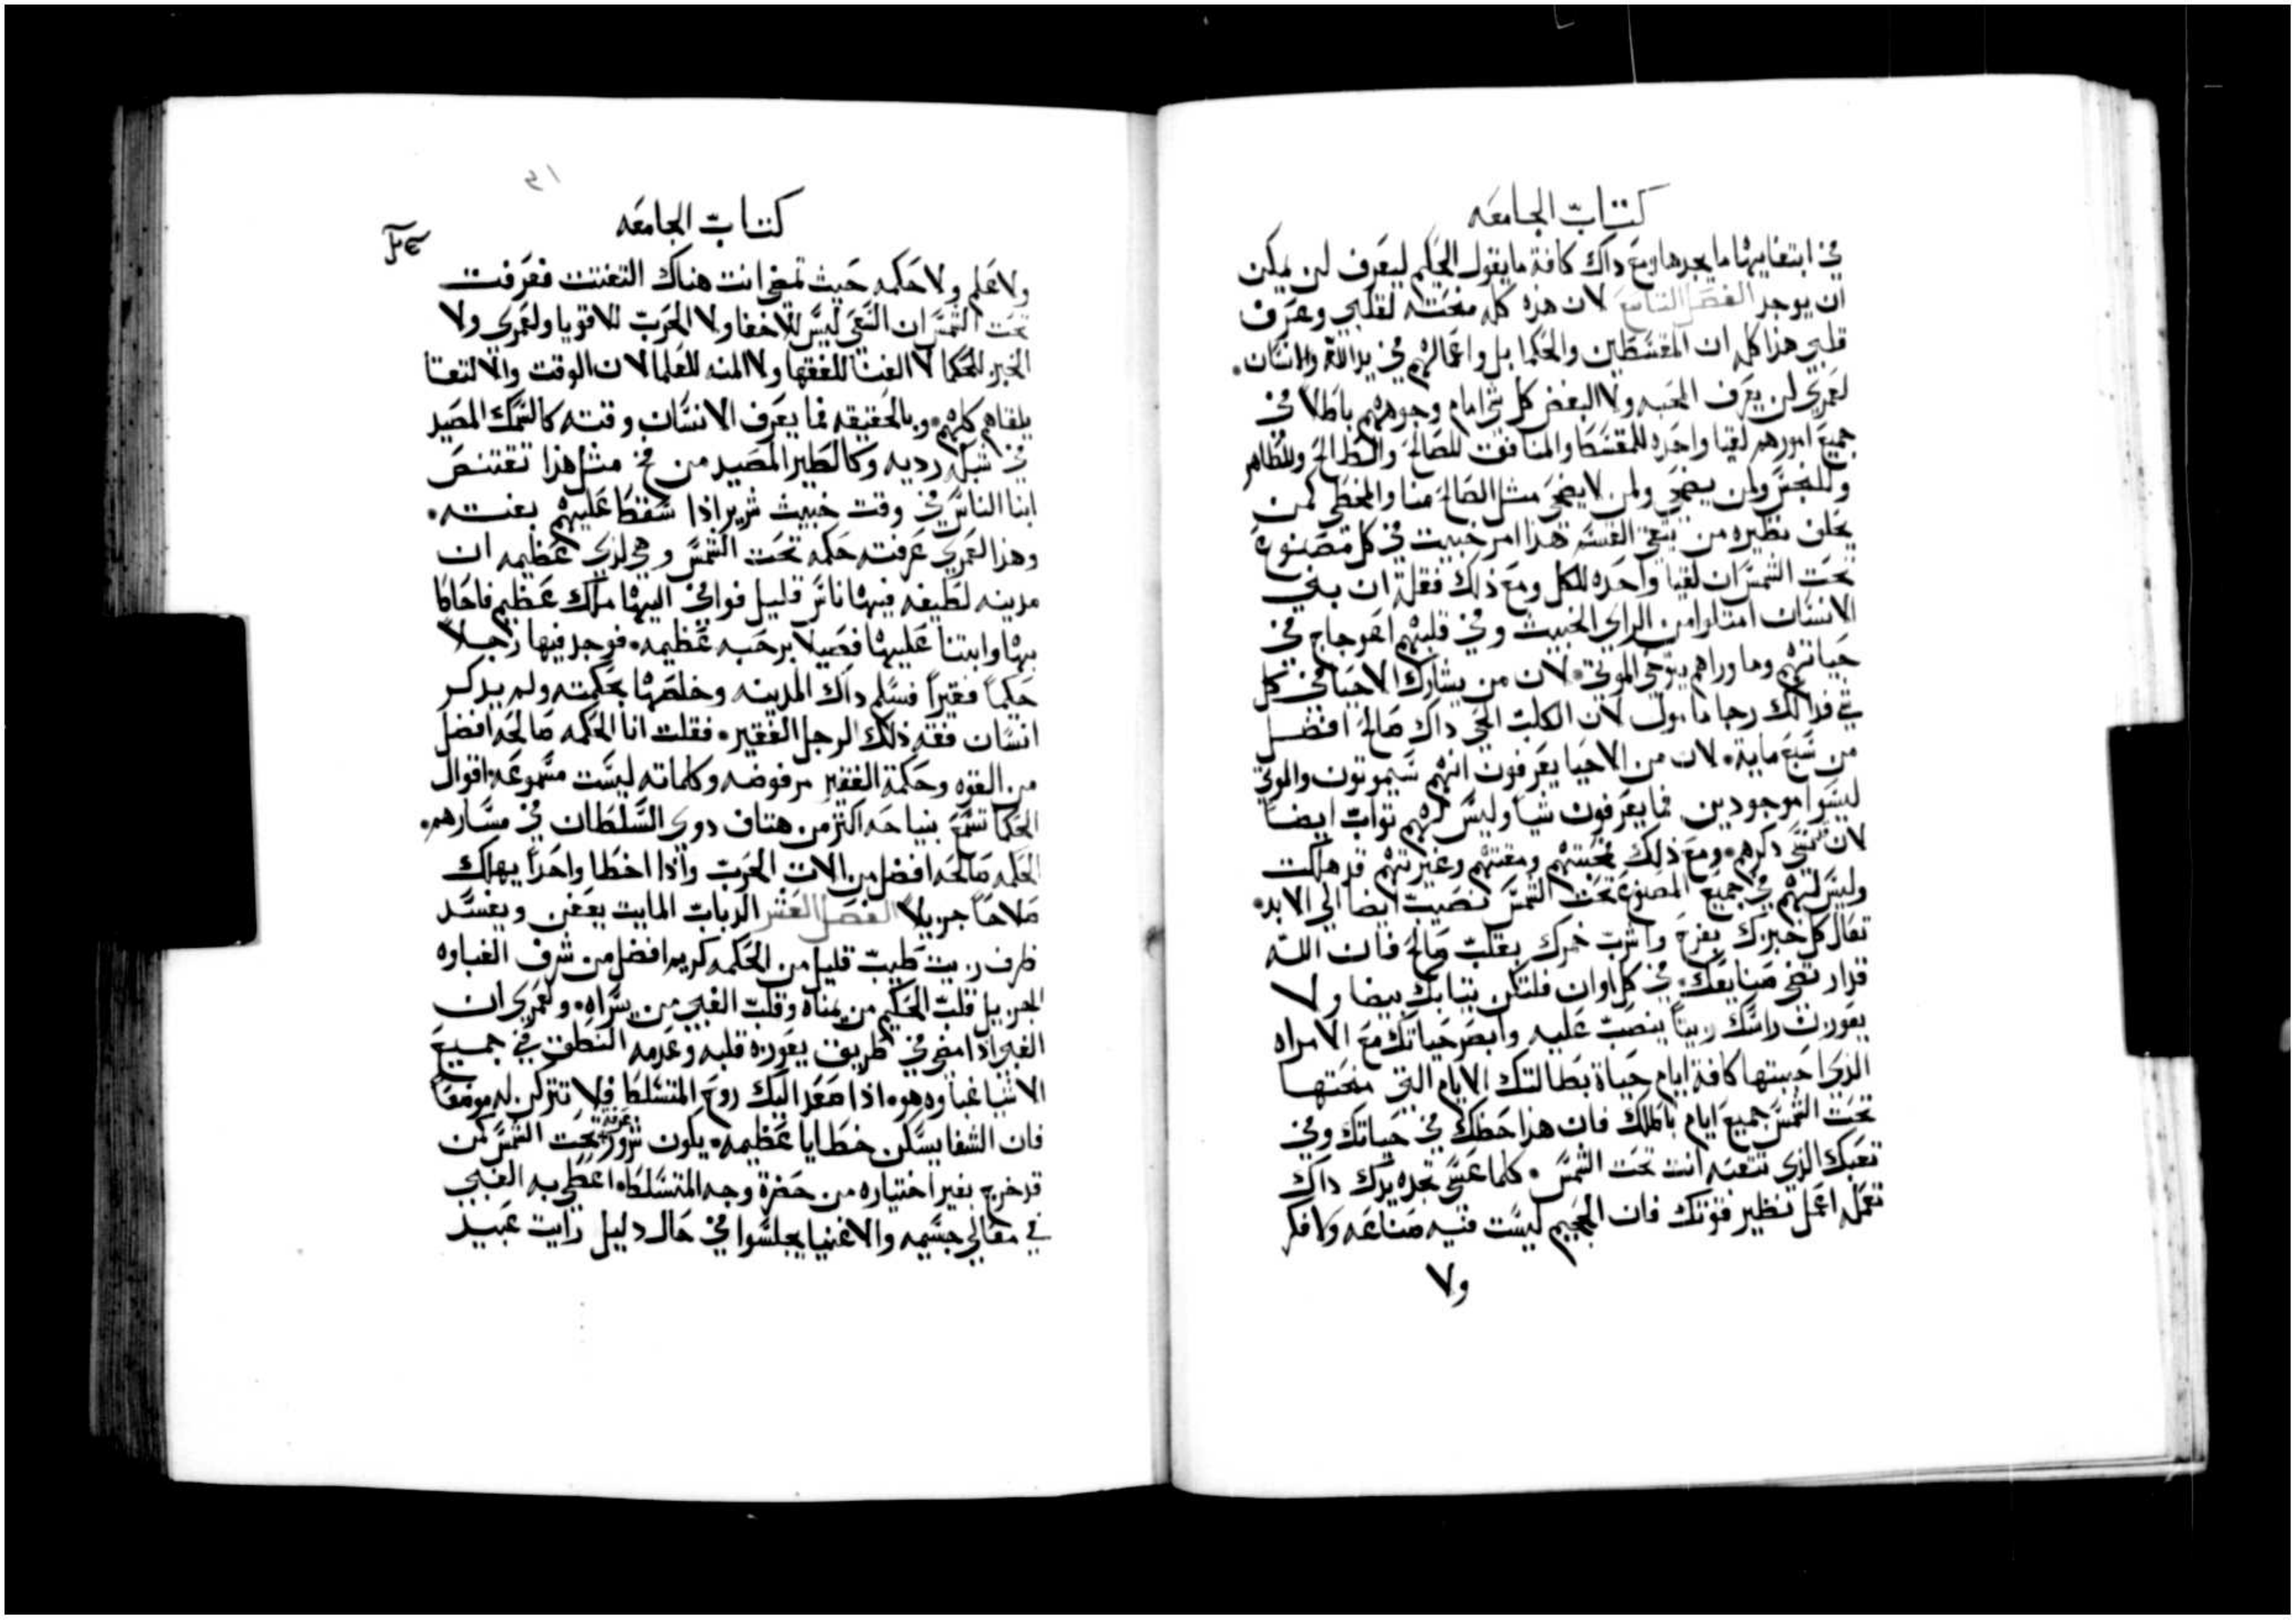 كتاب الجامعه
في ابتغايهاما يجدها ومع داك كافة ما يقول الحكيم ليعرف لن يمكن
ان يوجد الفصل التاسع لان هذه كله منحته لقلبي وعرف
قلبي هذا كله ان المقسطين والحكما بل واعمالهم في يد الله والانسان.
لعمري لن يعرف المحبه ولا البغض كل شي امام وجوههم باطلا في
جميع امورهم لقيا واحده للمقسط والمنافق للصالح والطالح وللطاهر
وللنجس ولمن يضحي ولمن لا يضحي مثل الصالح منا والمخطي كمن
يحلف نظيره من يتقي القسم هذا امر خبيت في كل مصنوع
تحت الشمس ان لقيا واحده للكل ومع ذلك فقلة ان بني
الانسان امتلوا من الراي الخبيث وفي قلبهم اعوجاج في
حياتهم وما وراهم ينوحي الموتي. لان من يشارك الاحيا في كل
شي فدالك رجا مامول لان الكلب الحي داك صالح افضل
من سبع مايت. لان من الاحيا يعرفون انهم سيموتون والموتي
ليسوا موجودين فما يعرفون شيا وليس لهم تواب ايضاً
لان نسي دكرهم. ومع ذلك محبتهم ومقتهم وغيرتهم قد هلكت
وليس لهم في جميع المصنوع تحت الشمس نصيب ايضا الي الابد.
تعال كل خبزك بفرح واشرب خمرك بقلب صالح فان الله
قد ارتضي صنايعك. في كل اوان فلتكن تيابك بيضا ولا
يعوزن راسك زيتاً ينصب عليه وابصر حياتك مع الامراه
الذي احببتها كافة ايام حياة بطالتك الايام التي منحتها
تحت الشمس جميع ايام باطلك فان هذا حظك في حياتك وفي
تعبك الذي تتعبه انت تحت الشمس. كلما عسي تجده يدك داك
تعمله اعمل نظير قوتك فان الجحيم ليست فيه صناعه ولا فكر
ولا
كتاب الجامعه
ولا علم ولا حكمه حيث تمضي انت هناك التفتت فعرفت
تحت الشمس ان السعي ليس للاخفا ولا الحرب للاقويا ولعمري ولا
الخبز للحكما لا الغنا للفقها ولا المنه للعلما لان الوقت والالتقا
يلقاهم كلهم. وبالحقيقه فما يعرف الانسان وقته كالسمك المصيد
في شبكه رديه وكالطير المصيد من فخ مثل هذا تقتنص
ابنا الناس في وقت خبيث شرير اذا سقط عليهم بغتته.
وهذا لعمري عرفته حكمه تحت الشمس وهي لدي عظيمه ان
مدينه لطيفه فيها ناس قليل فوافي اليها ملك عظيم فاحاط
بها وابتنا عليها فصيلا برحبه عظيمه. فوجد فيها رجلاً
حكيماً فقيراً فسلم داك المدينه وخلصها بحكمته ولم يدكر
انسان فقه ذلك الرجل الفقير. فقلت انا الحكمه صالحه افضل
من القوه وحكمة الفقير مرفوضه وكلماته ليست مسموعه اقوال
الحكما تسمع بنياحه اكتر من هتاف دوي السلطان في مسارهم.
الحكمه صالحه افضل من الات الحرب واذا اخطا واحداً يهلك
صلاحاً جزيلا الفصل العشر الرباب المايت يعفن ويفسد
ظرف زيت طيب قليل من الحكمه كريم افضل من شرف الغباوه
الجزيل قلب الحكيم من يمناه وقلب الغبي من يسراه. ولعمري ان
الغبي اذا مضي في طريق يعوزه قلبه وعدمه النطق في جميع
الاشيا غباوه هو. اذا صعد اليك روح المتسلط فلا تتركن له موضعاً
فان الشفا يسكن خطايا عظيمه. يكون شرور عرفته تحت الشمس كمن
قد خرج بغير اختياره من حضرة وجه المتسلط. اعطي به الغبي
في معالي جسيمه والاغنيا يجلسوا في حال دليل رايت عبيد